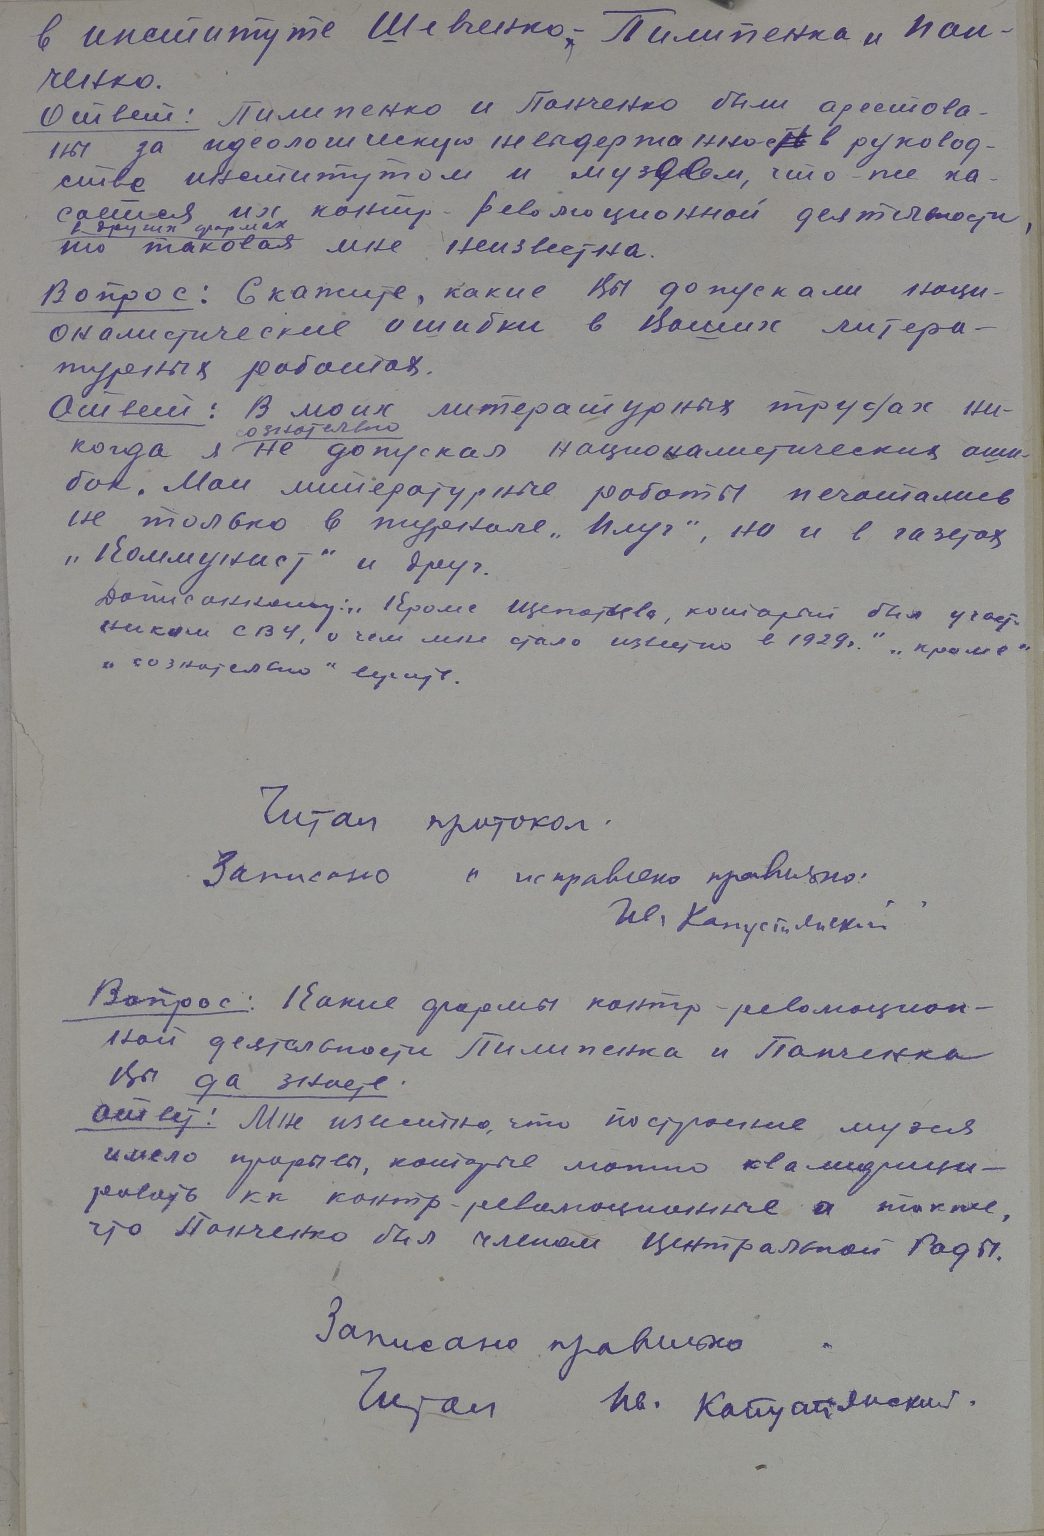 в институте Шевченко, – Пилипенка и Пан-
ченко.
Ответ: Пилипенко и Панченко были арестова-
ны за идеологическую невыдержанность в руковод-
стве институтом и музеем, что-же ка-
сается их контр-революционной деятельности,
в других формах
то таковая мне неизвестна.
Вопрос: Скажите, какие Вы допускали наци-
оналистические ошибки в Ваших литера-
турных работах.
Ответ: В моих литературных трудах ни-
сознательно
когда я не допускал националистических оши-
бок. Мои литературные работы печатались
не только в журнале „Плуг", но и в газетах
„Коммунист" и друг.
Дописанному: „Кроме Щепотьева, который был участ-
ником СВУ, о чем мне стало известно в 1929г." „кроме"
„сознательно" верить.
Читал протокол.
Записано и исправлено правильно.
Ив. Капустянский
Вопрос: Какие формы контр-революцион-
ной деятельности Пилипенка и Панченка
Вы да знаете.
Ответ: Мне известно, что построение музея
имело прорывы, которые можно квалифици-
ровать кк контр-революционные а также,
что Панченко был членом Центральной Рады.
Записано правильно.
Читал Ив. Капустянский.